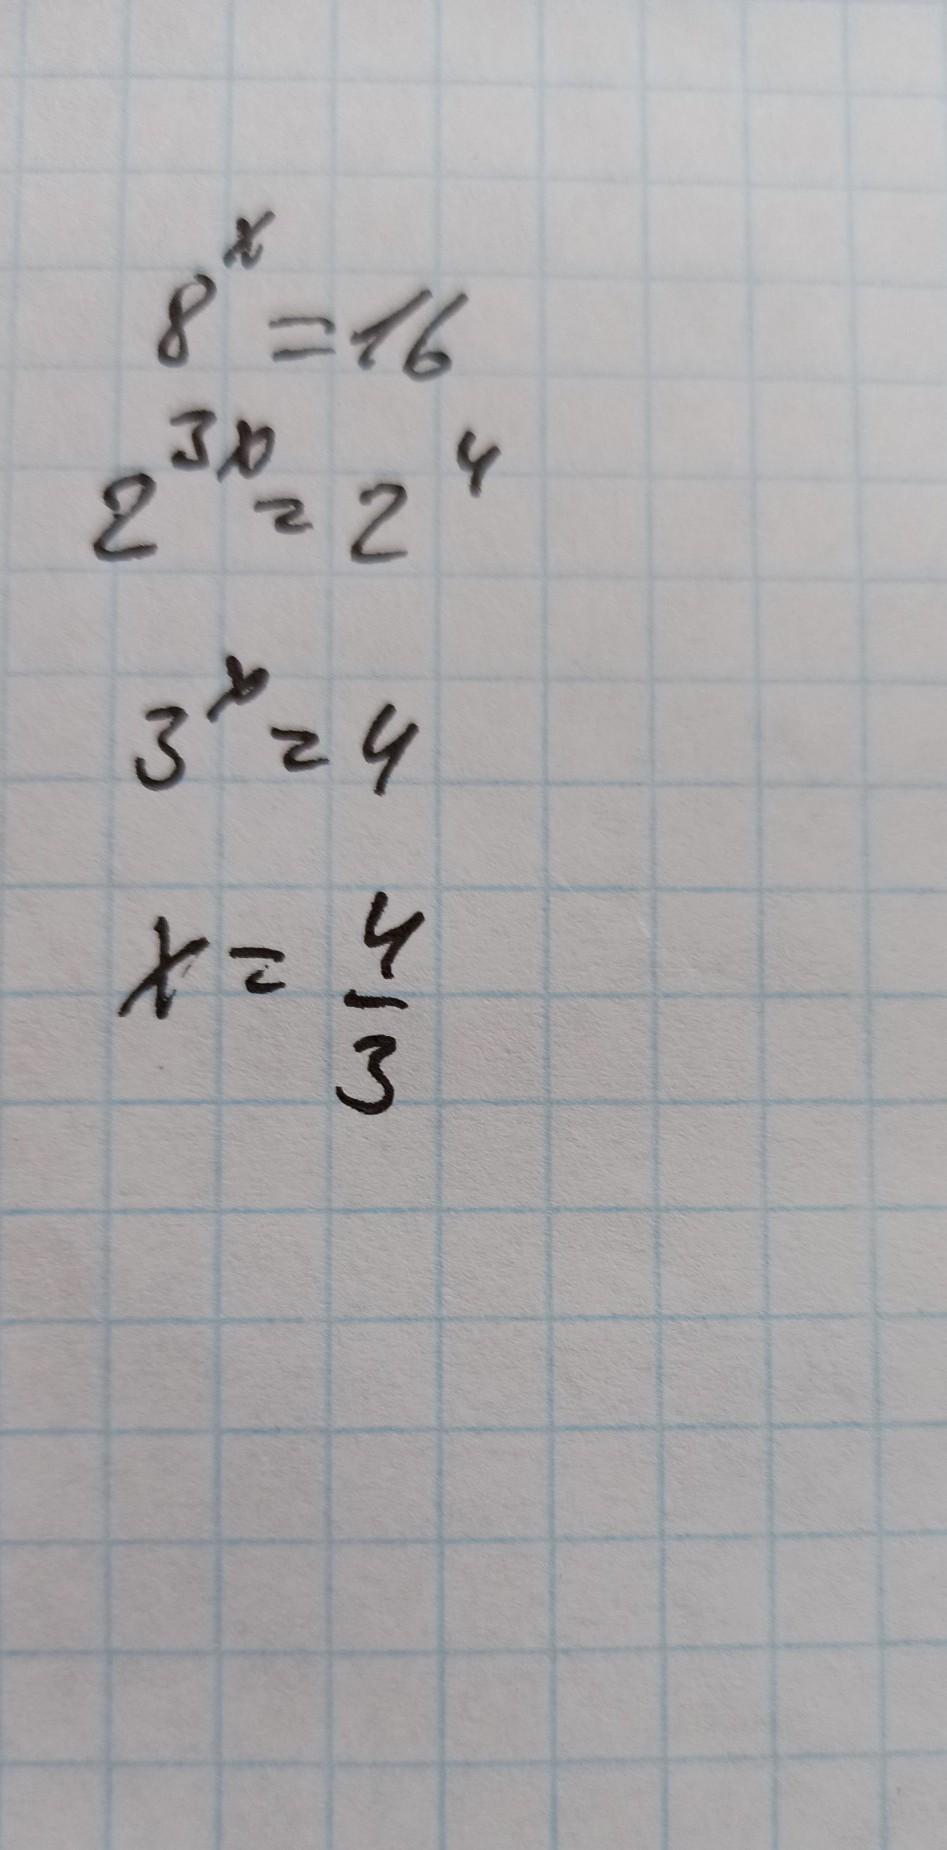 8^x = 16
2^3x = 2^4
3^x = 4
x = 4/3